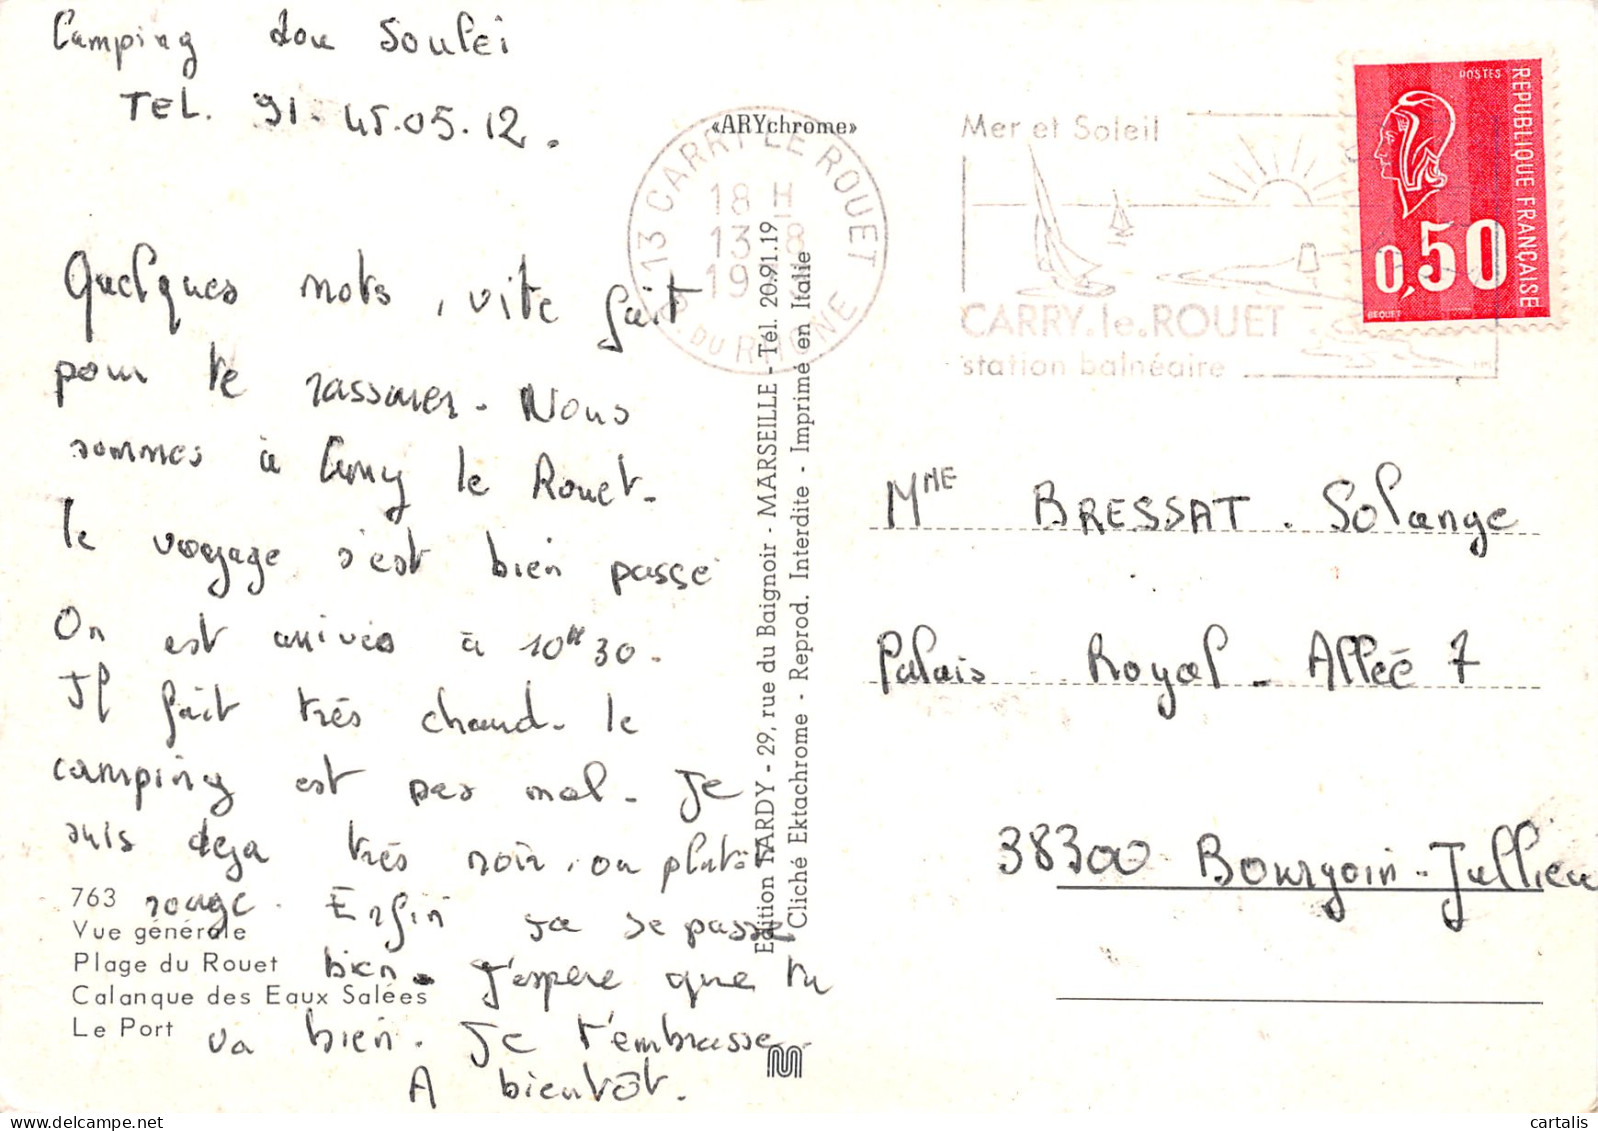 Camping dou Soulei
TEL. 91.45.05.12.
Quelques mots, vite fait
pour te rassurer. Nous
sommes à Carry le Rouet.
le voyage s'est bien passé
On est arrivés à 10H30.
Il fait très chaud. le
camping est pas mal. Je
suis deja très noir, ou plutôt
rouge. Enfin sa se passe
bien. J'espère que tu
va bien. Je t'embrasse.
A bientôt.
763
Vue générale
Plage du Rouet
Calanque des Eaux Salées
Le Port
«ARYchrome»
Edition TARDY - 29, rue du Baignoir - MARSEILLE - Tél. 20.91.19
Cliché Ektachrome - Reprod. Interdite - Imprimé en Italie
13 CARRY LE ROUET
18 H
13-8
19
B. DU RHONE
Mer et Soleil
CARRY.le.ROUET
station balnéaire
POSTES
REPUBLIQUE FRANÇAISE
0,50
BEQUET
MME BRESSAT. Solange
Palais Royal - Allée 7
38300 Bourgoin-Jallieu
cartalis